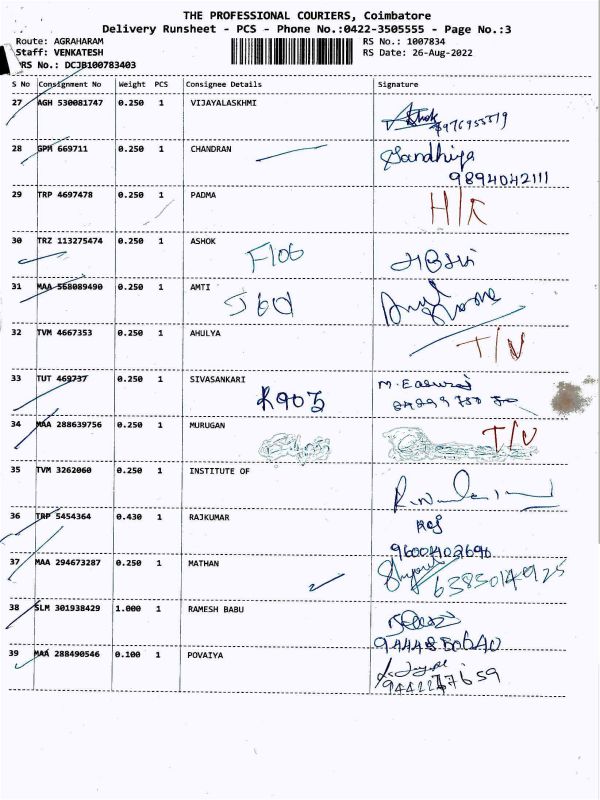 THE PROFESSIONAL COURIERS, Coimbatore
Delivery Runsheet - PCS - Phone No.:0422-3505555 - Page No.:3
Route: AGRAHARAM RS No.: 1007834
Staff: VENKATESH RS Date: 26-Aug-2022
PRS No.: DCJB100783403
S No Consignment No Weight PCS Consignee Details Signature
27 AGH 530081747 0.250 1 VIJAYALASKHMI
28 GPM 669711 0.250 1 CHANDRAN Sandhiya
9894042111
29 TRP 4697478 0.250 1 PADMA H/R
30 TRZ 113275474 0.250 1 ASHOK
F106
31 MAA 568089490 0.250 1 AMTI
32 TVM 4667353 0.250 1 AHULYA T/N
33 TUT 469737 0.250 1 SIVASANKARI M. Easwraj
K903
34 MAA 288639756 0.250 1 MURUGAN T/N
35 TVM 3262060 0.250 1 INSTITUTE OF
36 TRP 5454364 0.430 1 RAJKUMAR Raj
9600402696
37 MAA 294673287 0.250 1 MATHAN 6385014925
38 SLM 301938429 1.000 1 RAMESH BABU
39 MAA 288490546 0.100 1 POVAIYA